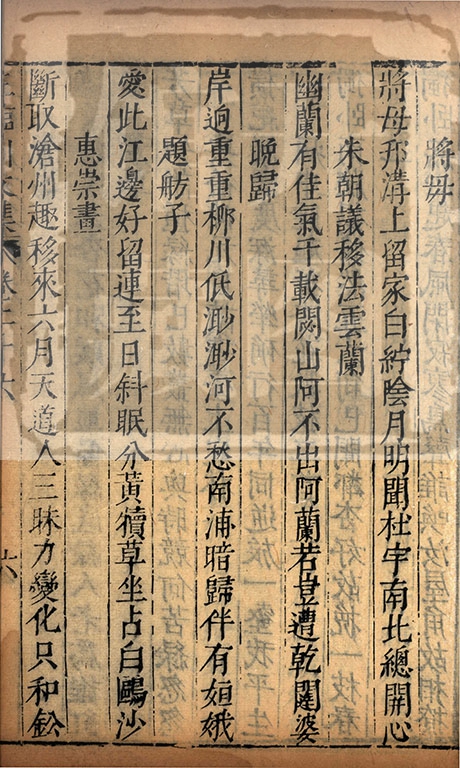 將母
將母邗溝上留家白紵陰月明聞杜宇南北總開心
朱朝議移法雲蘭
幽蘭有佳氣千載閟山阿不出阿蘭若豈遭乾闥婆
晚歸
岸迥重重柳川低渺渺河不愁南浦暗歸伴有姮娥
題舫子
愛此江邊好留連至日斜眠分黃犢草坐占白鷗沙
惠崇畫
斷取滄州趣移來六月天道人三昧力變化只和鈆
臨川文集卷二十六
六